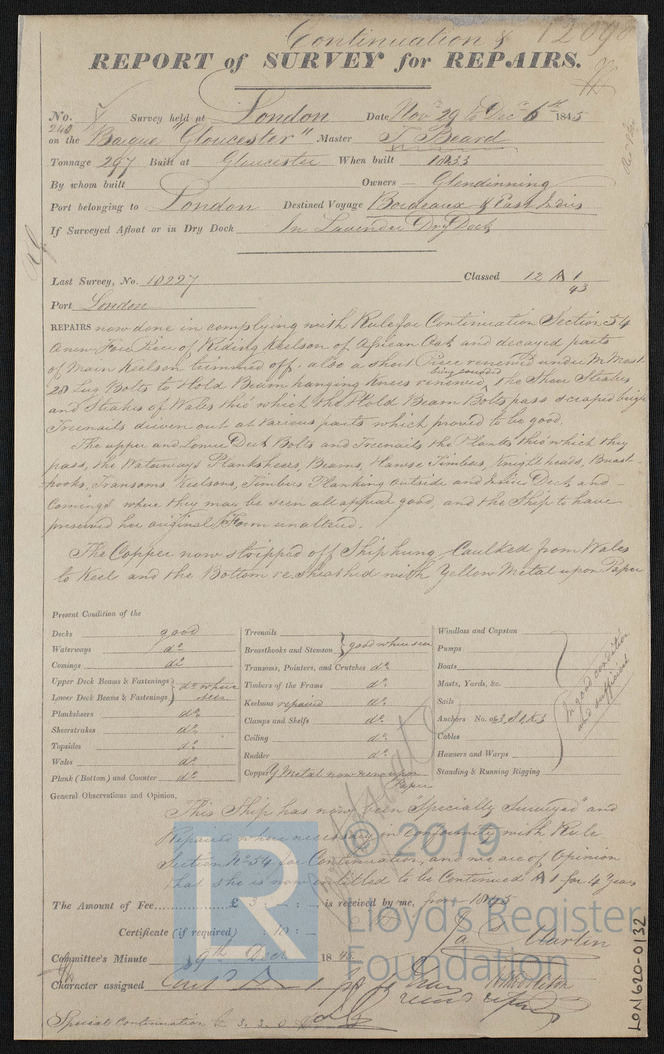 Continuation &
12098
REPORT of SURVEY for REPAIRS.
No. Survey held at London Date Nov. 29 to Dec. 6th 1845
240 on the Barque "Gloucester" Master T Beard
Tonnage 297 Built at Gloucester When built 1833
By whom built Owners Glendinning
Port belonging to London Destined Voyage Bordeaux & East Indies
If Surveyed Afloat or in Dry Dock In Lavender Dry Dock
Last Survey, No. 10297 Classed 12 A 1
43
Port London
REPAIRS now done in complying with Rule for Continuation Section 54
a new Fore Piece of Riding Keelson of African Oak and decayed parts
of Main Keelson trimmed off. also a short Piece renewed under M. Mast
being sounded
28 Lug Bolts to Hold Beam hanging knees renewed, the Shear Strakes
and Strakes of Wales thro' which the Hold Beam Bolts pass scraped bright
Treenails driven out at various parts which proved to be good.
The upper and Lower Deck Bolts and Treenails the Planks thro' which they
pass, the Waterways Planksheers, Beams, Hawse Timbers, Knightheads, Breast-
hooks, Transoms Keelsons, Timbers Planking outside and Inside Deck and
Comings where they may be seen all appear good, and the Ship to have
preserved her original Form unaltered.
The Copper now stripped off Ship hung, Caulked from Wales
to Keel and the Bottom resheathed with Yellow Metal upon Paper
Present Condition of the
Decks good
Waterways do
Comings do
Upper Deck Beams & Fastenings } do where
Lower Deck Beams & Fastenings } seen
Planksheers do
Sheerstrakes do
Topsides do
Wales do
Plank (Bottom) and Counter do
Treenails
Breasthooks and Stemson } good where seen
Transoms, Pointers, and Crutches do
Timbers of the Frame do
Keelsons repaired do
Clamps and Shelfs do
Ceiling do
Rudder do
Copper Y Metal now renew upon
Paper
Windlass and Capstan
Pumps
Boats
Masts, Yards, &c.
Sails
Anchors No. of
Cables
Hawsers and Warps
Standing & Running Rigging
In good condition
and sufficient
General Observations and Opinion,
This Ship has now been Specially Surveyed and
Repaired where necessary in conformity with Rule
Section No 54 for Continuation, and we are of Opinion
that she is now entitled to be Continued A 1 for 4 Years
from 1845
The Amount of Fee £ 3 : is received by me,
Certificate (if required) : 10 : -
Ja Martin
Committee's Minute 9th Decr 1845
Character assigned
Special Continuation
© 2019
LR
Lloyd's Register
Foundation
LON620-0132